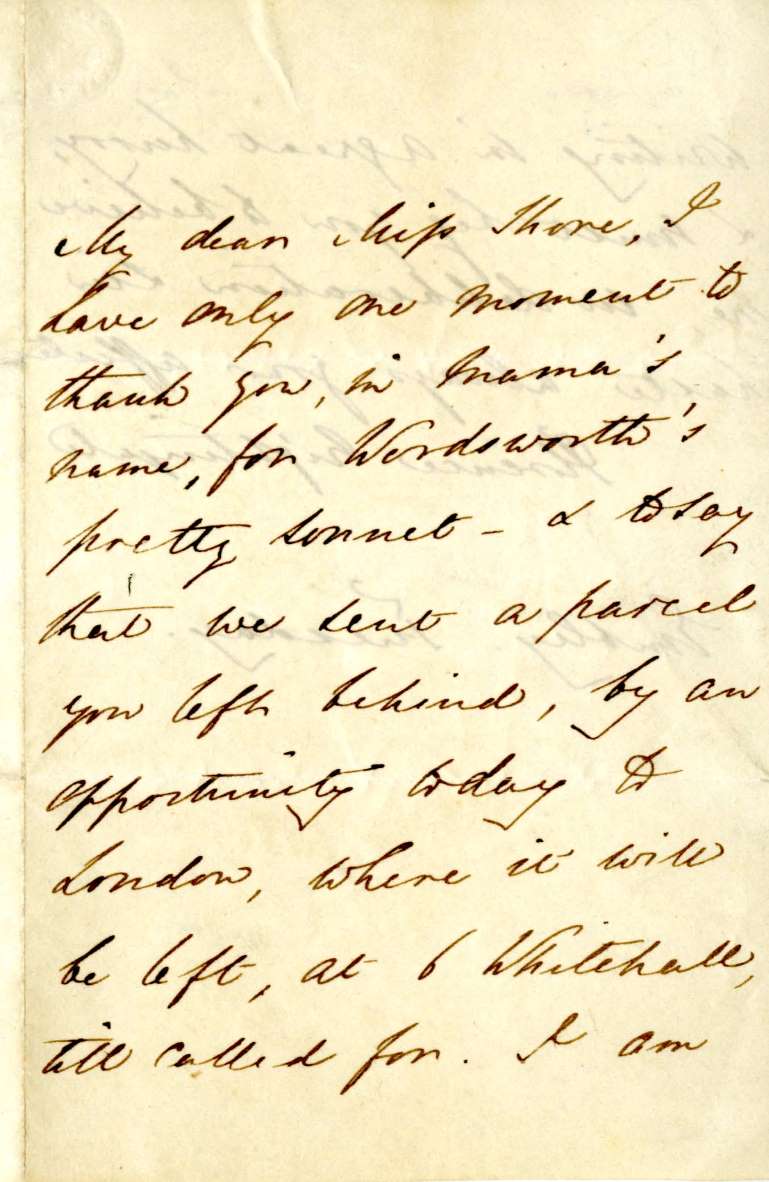 My dear Miss Shore, I
have only one moment to
thank you, in Mama's
name, for Wordsworth's
pretty sonnet - & to say
that we sent a parcel
you left behind, by an
opportunity today to
London, where it will
be left, at 6 Whitehall,
till called for. I am